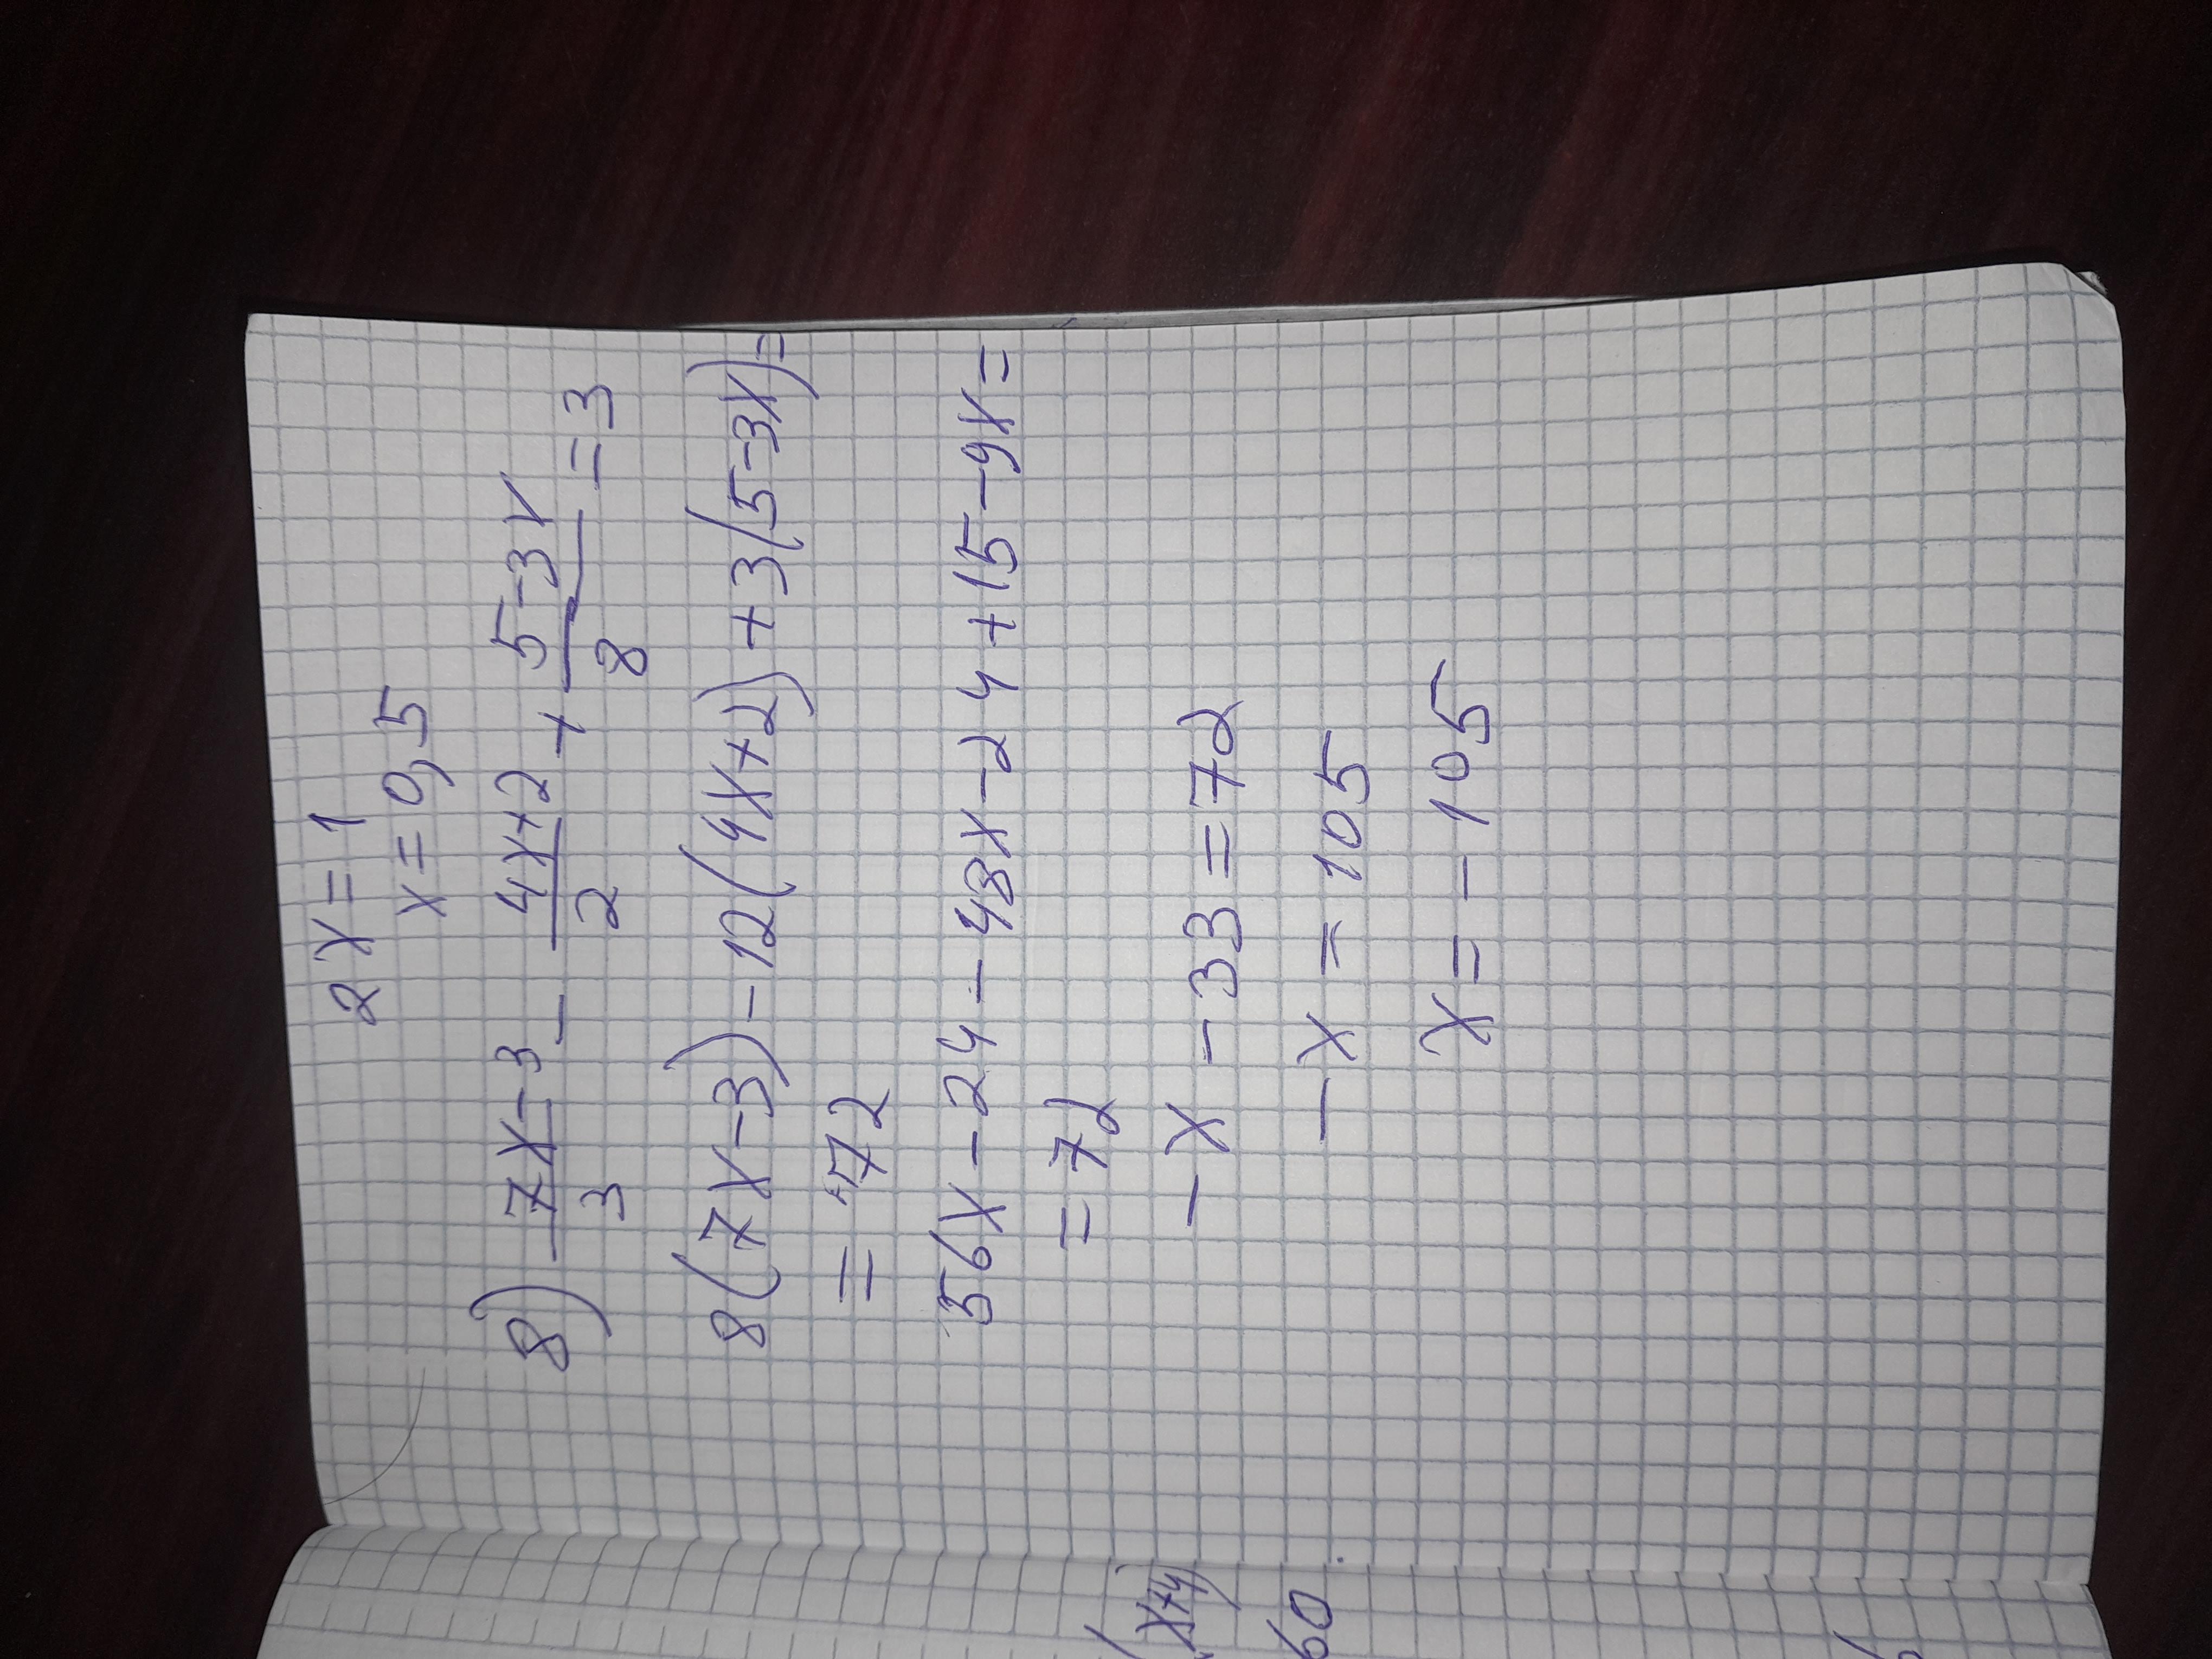 2x = 1
x = 0,5
8) (7x-3)/3 - (4x+2)/2 + (5-3x)/8 = 3
8(7x-3)-12(4x+2)+3(5-3x)=
= 72
56x-24-48x-24+15-9x=
= 72
-x -33 = 72
-x = 105
x = -105
(x+4)
60